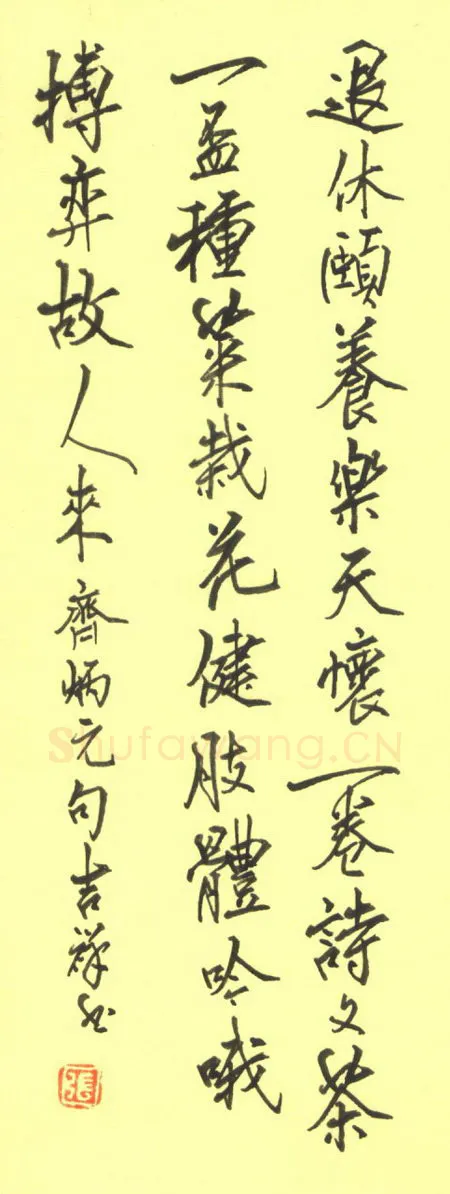 退休頤養樂天懷一卷詩文茶
一盃種菜栽花健肢體吟哦
搏弈故人來齊炳元句吉祥书
張
Shufawang.CN